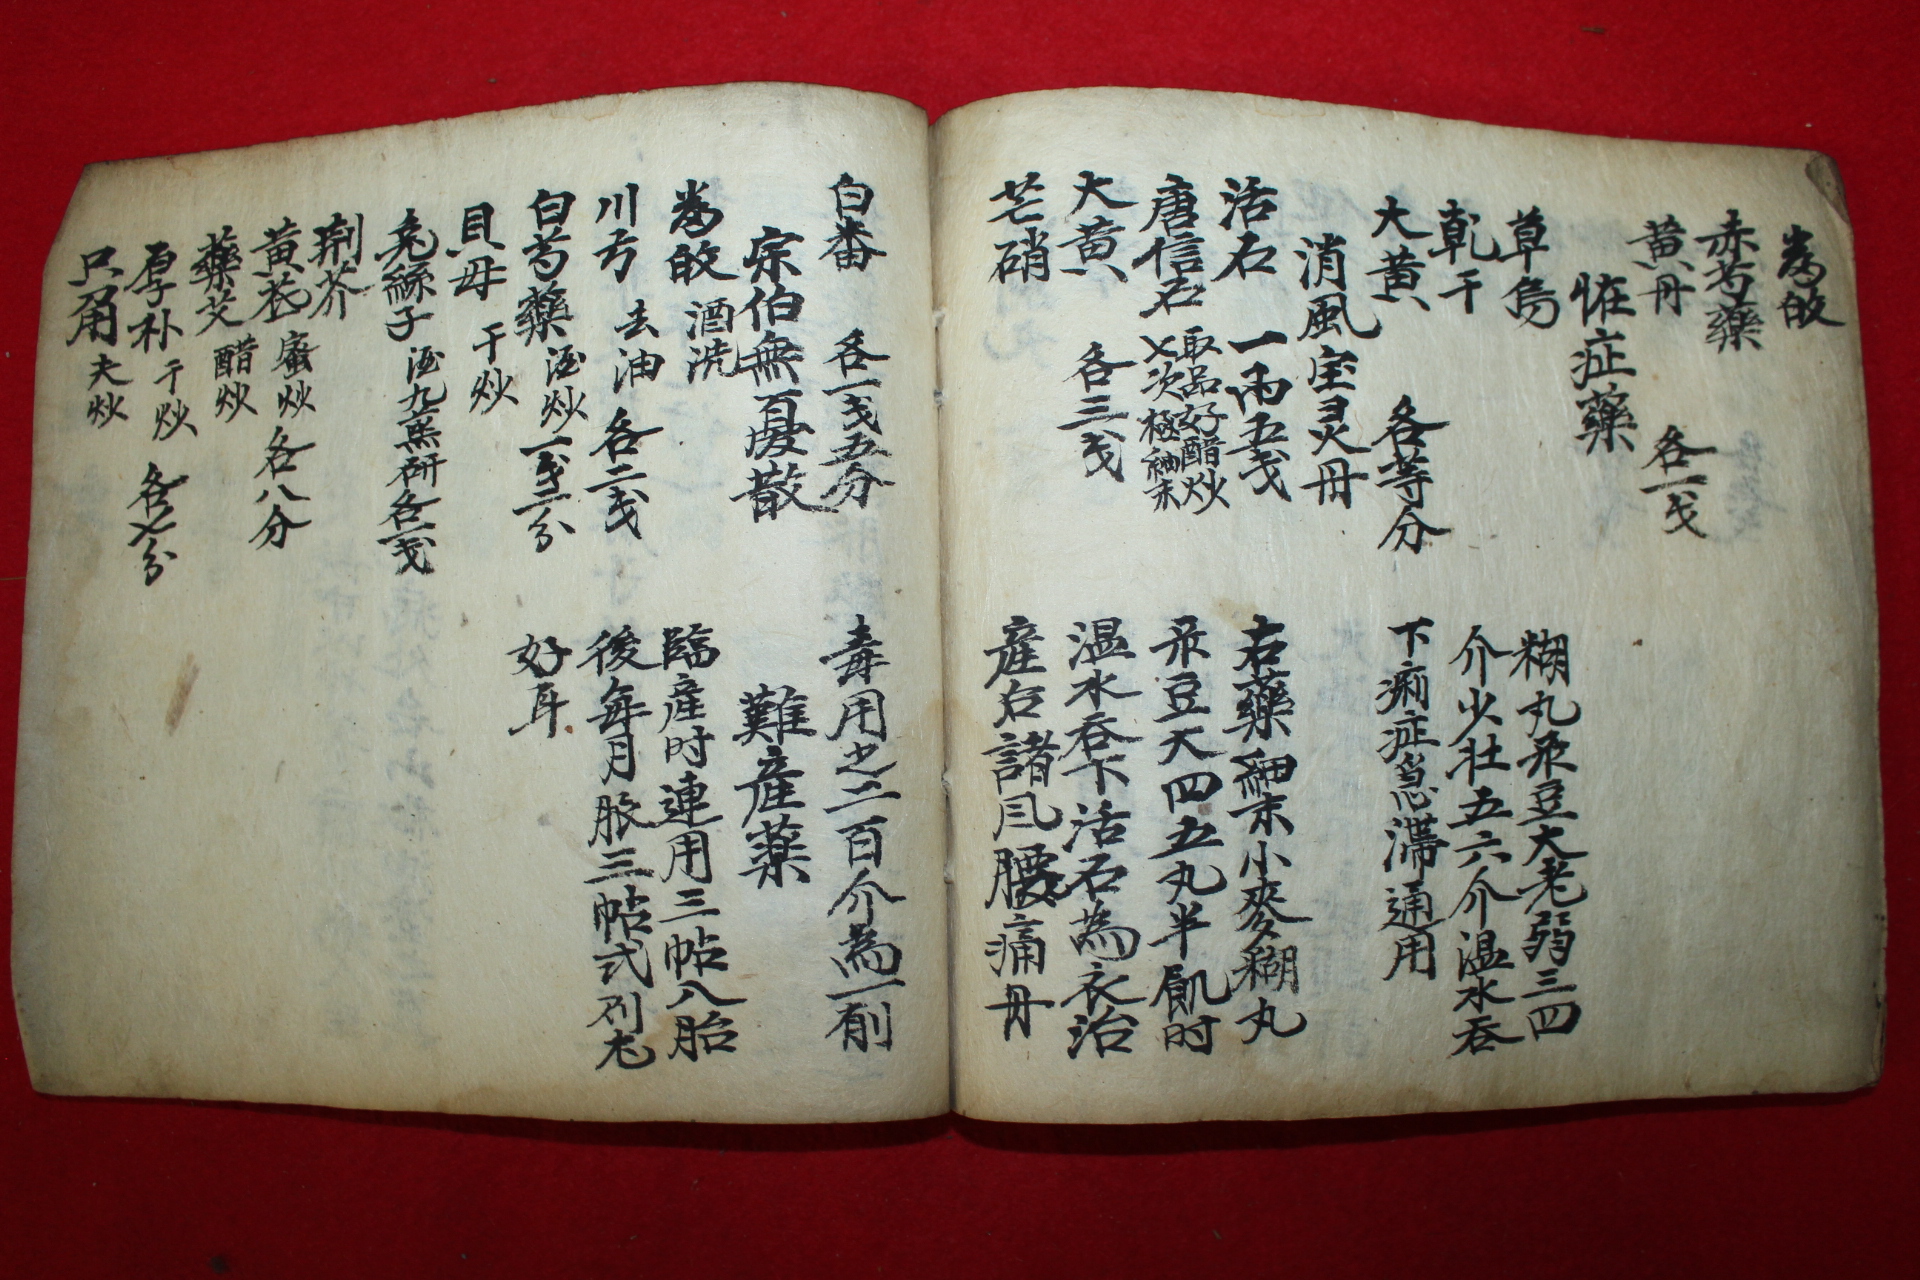 當皈
赤芍藥
黃丹 各一戔
恠症藥
草烏 糊丸彔豆大老弱三四
乾干 介少壯五六介温水呑
大黃 各等分 下痢症急滯通用
消風宝灵丹
活石 一兩五戔 右藥細末小麥糊丸
唐信石 取品好醋炒七次極細末 彔豆大四五丸半飢时
大黃 各三戔 温水呑下活石為衣治
芒硝 産后諸凮腰痛丹
白番 各一戔五分 毒用之二百介為一剤
宗伯無憂散 難産藥
當皈 酒洗 臨産时連用三帖八胎
川芎 去油 各二戔 後每月服三帖式
白芍藥 酒炒 一戔二分 好耳
貝母 干炒
兔絲子 酒九蒸研 各一戔
荆芥
黃芪 蜜炒 各八分
藥艾 醋炒
厚朴 干炒 各七分
只角 夫炒